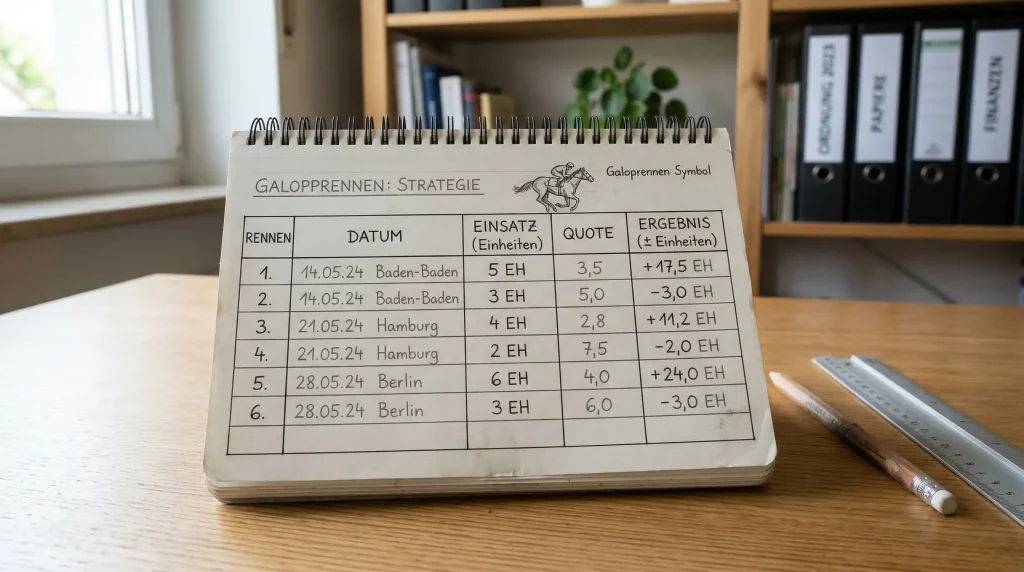 GALOPPRENNEN: STRATEGIE
Galoprennen Symbol
RENNEN DATUM EINSATZ (Einheiten) QUOTE ERGEBNIS (± Einheiten)
1. 14.05.24 Baden-Baden 5 EH 3,5 +17,5 EH
2. 14.05.24 Baden-Baden 3 EH 5,0 -3,0 EH
3. 21.05.24 Hamburg 4 EH 2,8 +11,2 EH
4. 21.05.24 Hamburg 2 EH 7,5 -2,0 EH
5. 28.05.24 Berlin 6 EH 4,0 +24,0 EH
6. 28.05.24 Berlin 3 EH 6,0 -3,0 EH
ORDNUNG 2023
PAPIERE
FINANZEN